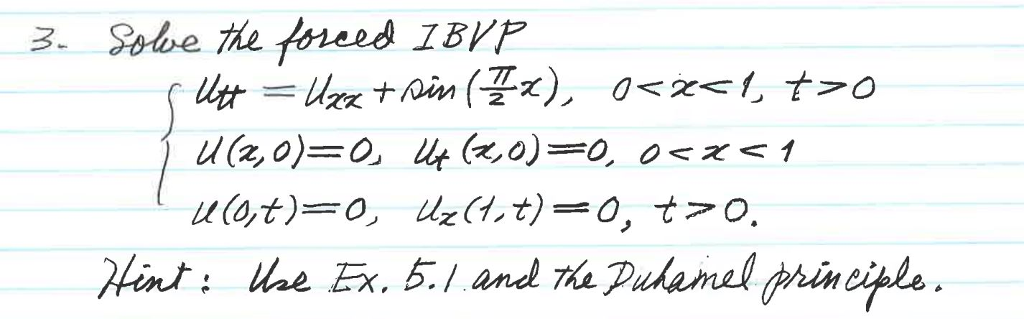 3. Solve the forced IBVP
Utt = Uxx + sin(π/2 x), 0<x<1, t>0
U(x,0)=0, Ut(x,0)=0, 0<x<1
U(0,t)=0, Ux(1,t)=0, t>0.
Hint: Use Ex. 5.1 and the Duhamel principle.